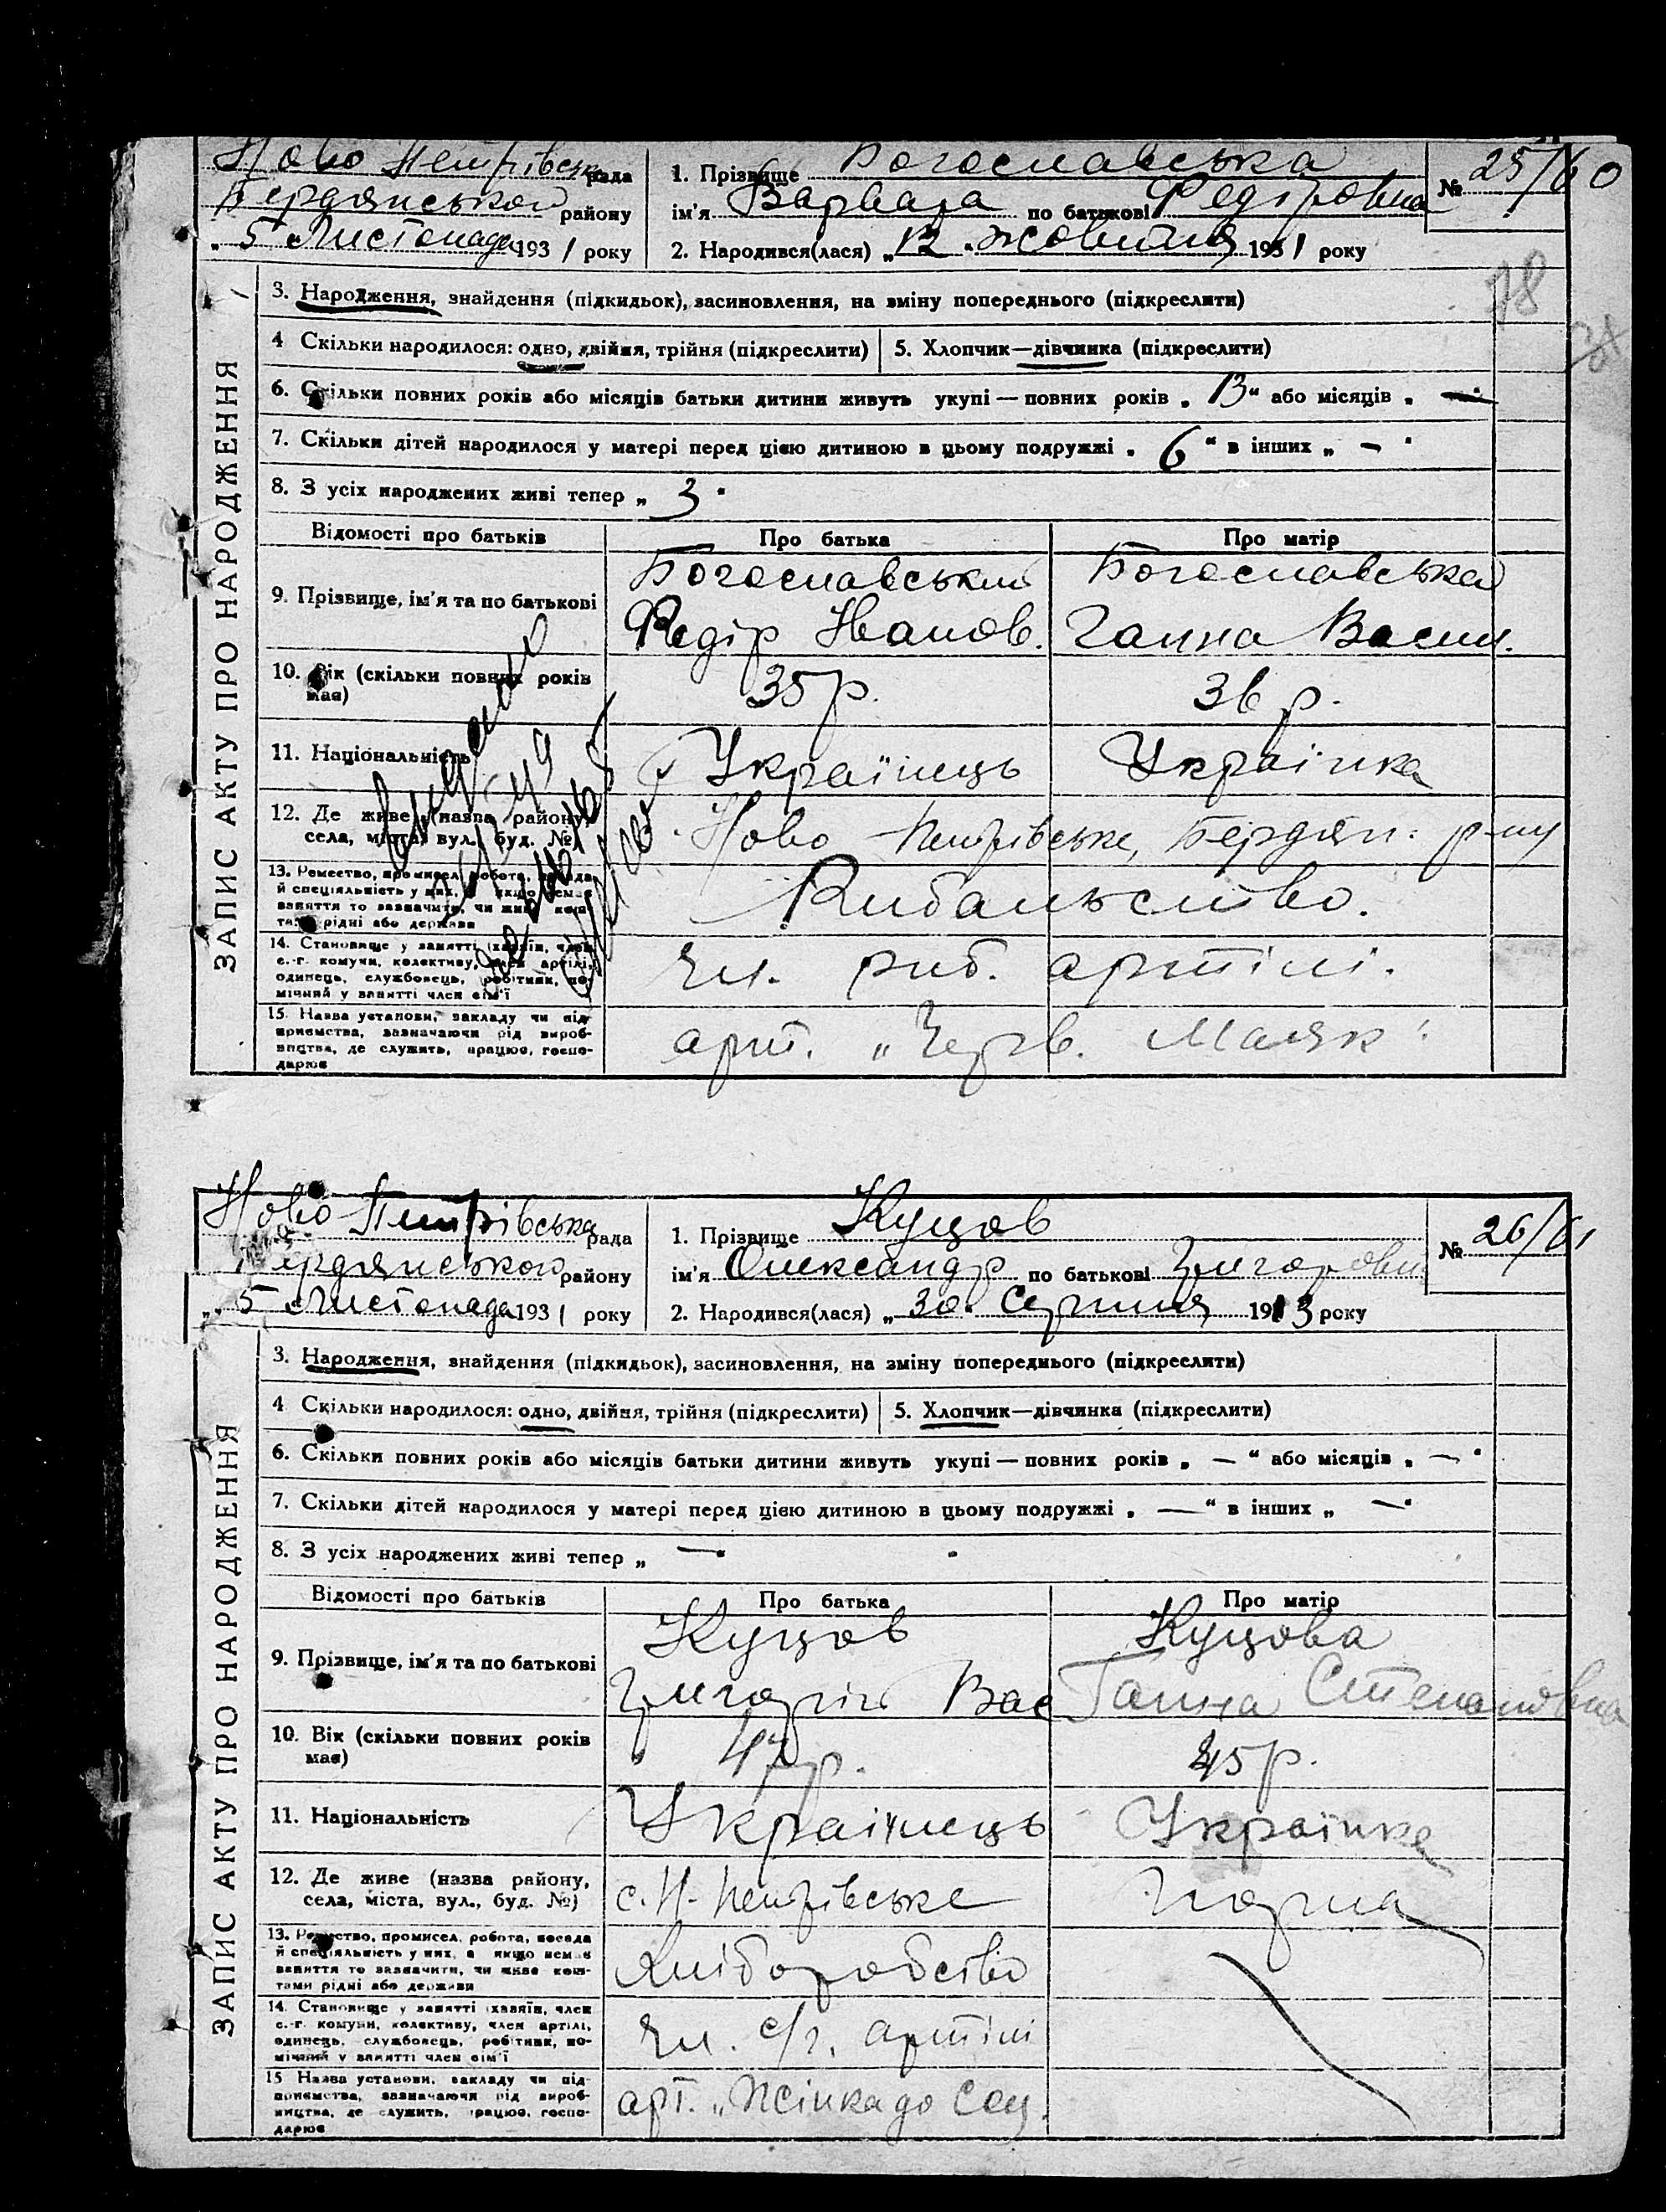 Ново Петрівська рада
Бердянського району
„ 5 Листопада 1931 року
1. Прізвище Богославська
ім'я Варвара по батькові Федіровна
2. Народився(лася) „12" жовтня 1931 року
№ 25/60
78
ЗАПИС АКТУ ПРО НАРОДЖЕННЯ
3. Народження, знайдення (підкидьок), засиновлення, на зміну попереднього (підкреслити)
4 Скільки народилося: одно, двійня, трійня (підкреслити)
5. Хлопчик—дівчинка (підкреслити)
6. Скільки повних років або місяців батьки дитини живуть укупі — повних років „ 13 “ або місяців „ — "
7. Скільки дітей народилося у матері перед цією дитиною в цьому подружжі „ 6 “ в інших „ — "
8. З усіх народжених живі тепер „ 3 "
Відомості про батьків
Про батька
Про матір
9. Прізвище, ім'я та по батькові
Богославський
Федір Іванов.
Богославська
Ганна Васил.
10. Вік (скільки повних років має)
35 р.
36 р.
11. Національність
Українець
Українка
12. Де живе (назва району, села, міста, вул., буд. №)
Ново Петрівське, Бердян. р-ну
13. Ремество, промисел, робота, посада й спеціяльність у них, а якщо немає заняття то зазначити, чи живе коштами рідні або держави
Рибальство.
14. Становище у занятті (хазяїн, член с.-г. комуни, колективу, член артілі, одинець, службовець, робітник, помічний у занятті член сім'ї
Чл. риб. артілі.
15. Назва установи, закладу чи підприємства, зазначаючи рід виробництва, де служить, працює, господарює
арт. „Черв. Маяк"
Ново Петрівська рада
Бердянського району
„ 5 Листопада 1931 року
1. Прізвище Куцов
ім'я Олександр по батькові Григорович
2. Народився(лася) „30" Серпня 1913 року
№ 26/61
ЗАПИС АКТУ ПРО НАРОДЖЕННЯ
3. Народження, знайдення (підкидьок), засиновлення, на зміну попереднього (підкреслити)
4 Скільки народилося: одно, двійня, трійня (підкреслити)
5. Хлопчик—дівчинка (підкреслити)
6. Скільки повних років або місяців батьки дитини живуть укупі — повних років „ — “ або місяців „ — "
7. Скільки дітей народилося у матері перед цією дитиною в цьому подружжі „ — “ в інших „ — "
8. З усіх народжених живі тепер „ — "
Відомості про батьків
Про батька
Про матір
9. Прізвище, ім'я та по батькові
Куцов
Григорій Вас
Куцова
Ганна Степановна
10. Вік (скільки повних років має)
47 р.
45 р.
11. Національність
Українець
Українка
12. Де живе (назва району, села, міста, вул., буд. №)
с. Н-Петрівське
13. Ремество, промисел, робота, посада й спеціяльність у них, а якщо немає заняття то зазначити, чи живе коштами рідні або держави
Хліборобство
14. Становище у занятті (хазяїн, член с.-г. комуни, колективу, член артілі, одинець, службовець, робітник, помічний у занятті член сім'ї
Чл. с/г. артілі
15 Назва установи, закладу чи підприємства, зазначаючи рід виробництва, де служить, працює, господарює